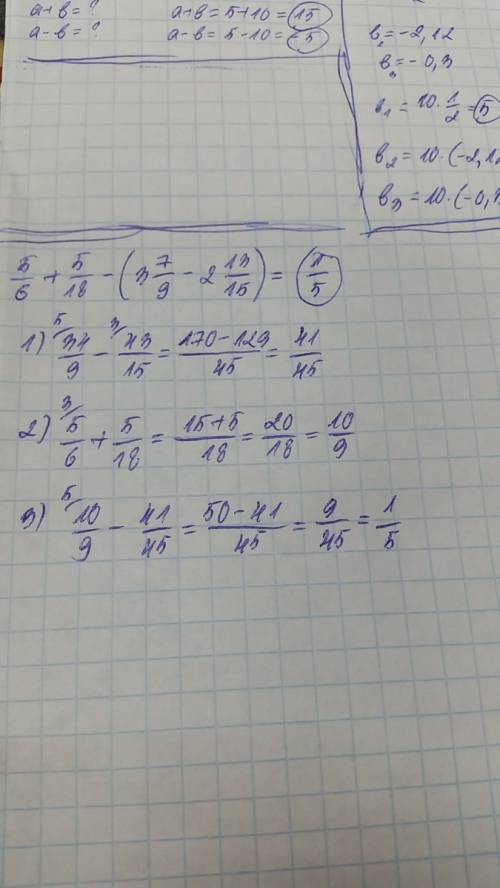 a+b=?   a+b=5+10=15
a-b=?   a-b=5-10=-5
b₂=-2,12
b₃=-0,3
b₁=10·1/2=5
b₂=10·(-2,12
b₃=10·(-0,3
5/6+5/18-(3 7/9-2 13/15)=1/5
1) ⁵/ 34/9-³/ 43/15=170-129/45=41/45
2) ³/ 5/6+5/18=15+5/18=20/18=10/9
3) ⁵/ 10/9-41/45=50-41/45=9/45=1/5